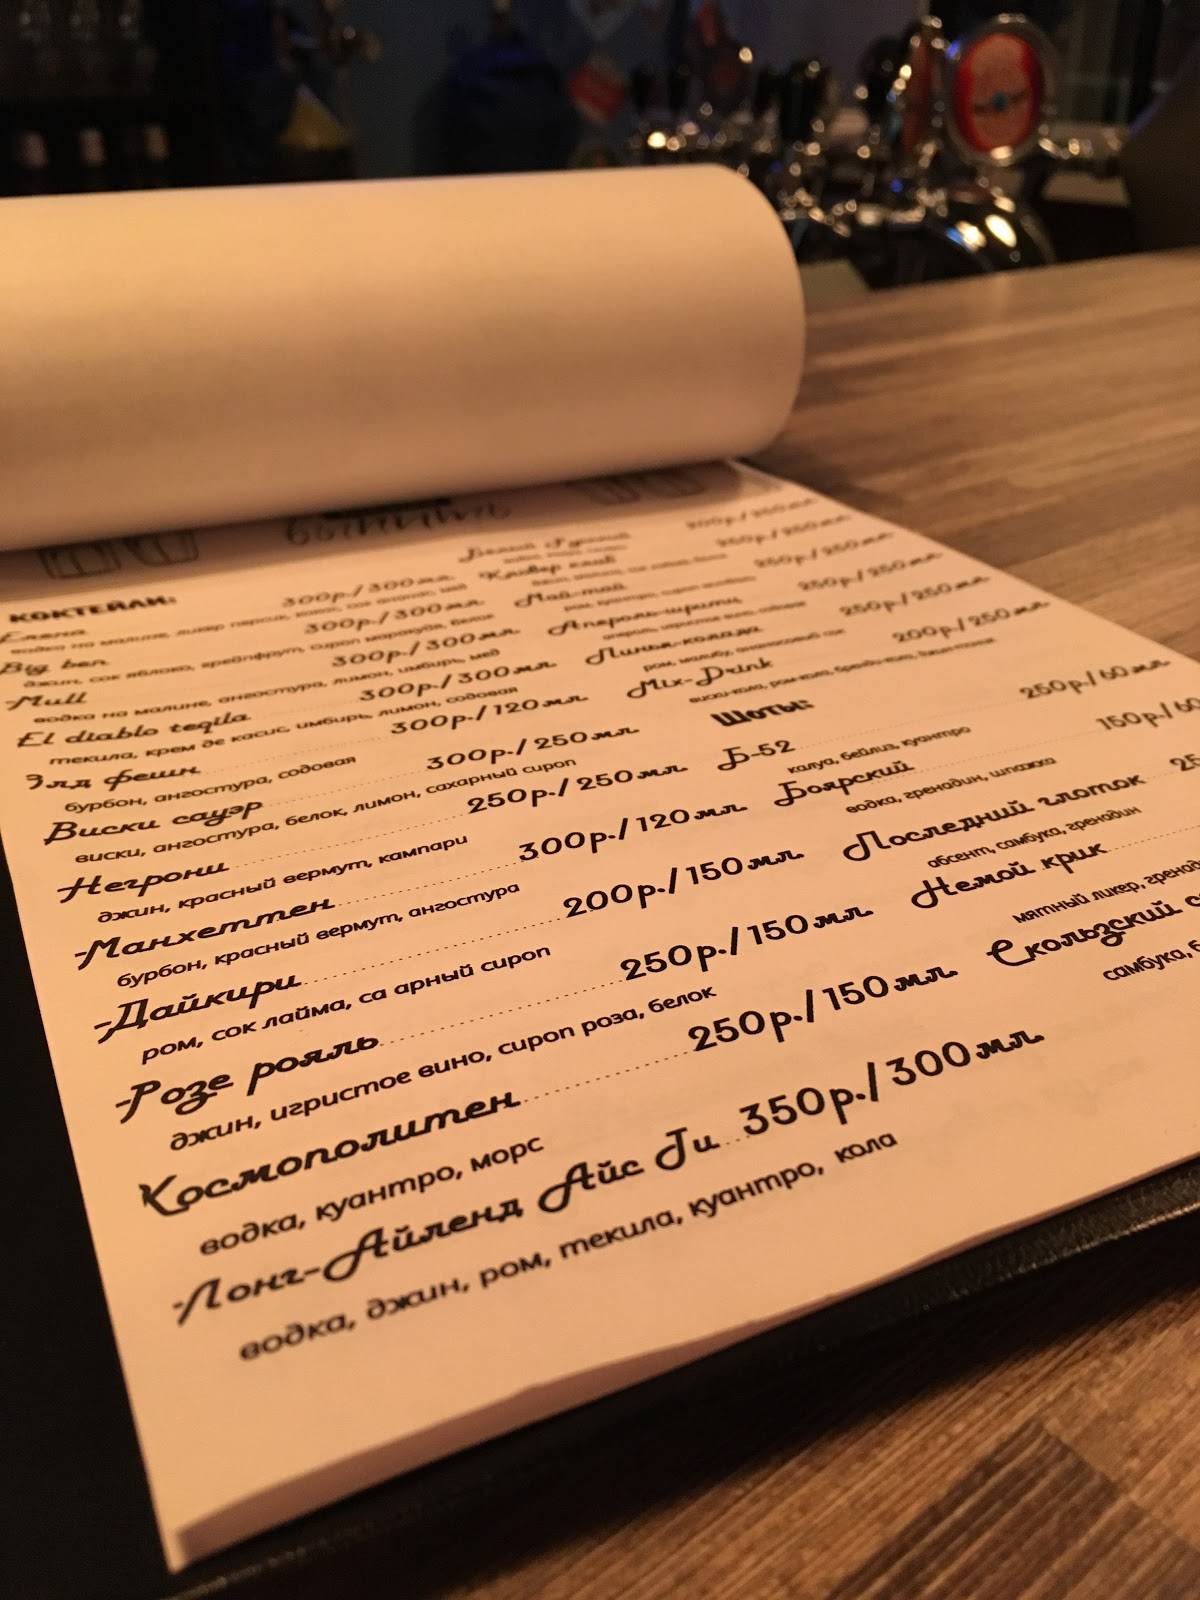 выпить
КОКТЕЙЛИ:
Елена 300р./300мл
Big ben 300р./300мл
джин, сок яблоко, грейпфрут, сироп маракуйя, белок
Mull 300р./300мл
водка на малине, ангостура, лимон, имбирь, мед
El diablo teqila 300р./300мл
текила, крем де касис, имбирь, лимон, содовая
Элд фешн 300р./120мл
бурбон, ангостура, содовая
Виски сауэр 300р./250мл
виски, ангостура, белок, лимон, сахарный сироп
Негрони 250р./250мл
джин, красный вермут, кампари
Манхеттен 300р./120мл
бурбон, красный вермут, ангостура
Дайкири 200р./150мл
ром, сок лайма, са арный сироп
Розе рояль 250р./150мл
джин, игристое вино, сироп роза, белок
Космополитен 250р./150мл
водка, куантро, морс
Лонг-Айленд Айс Ти 350р./300мл
водка, джин, ром, текила, куантро, кола
Белый Русский 200р./250мл
Кловер клаб 250р./250мл
Май-тай 250р./250мл
Апероль-шприц 250р./250мл
Пинья-колада 250р./250мл
ром, малибу, ананасовый сок
Mix-Drink 200р./250мл
виски-кола, ром-кола, бренди-кола, джин-тоник
Шоты:
Б-52 250р./60мл
калуа, бейлиз, куантро
Боярский 150р./60
водка, гренадин, шпажка
Последний глоток 25
абсент, самбука, гренадин
Немой крик
мятный ликер, гренад
Скользский с
самбука, б